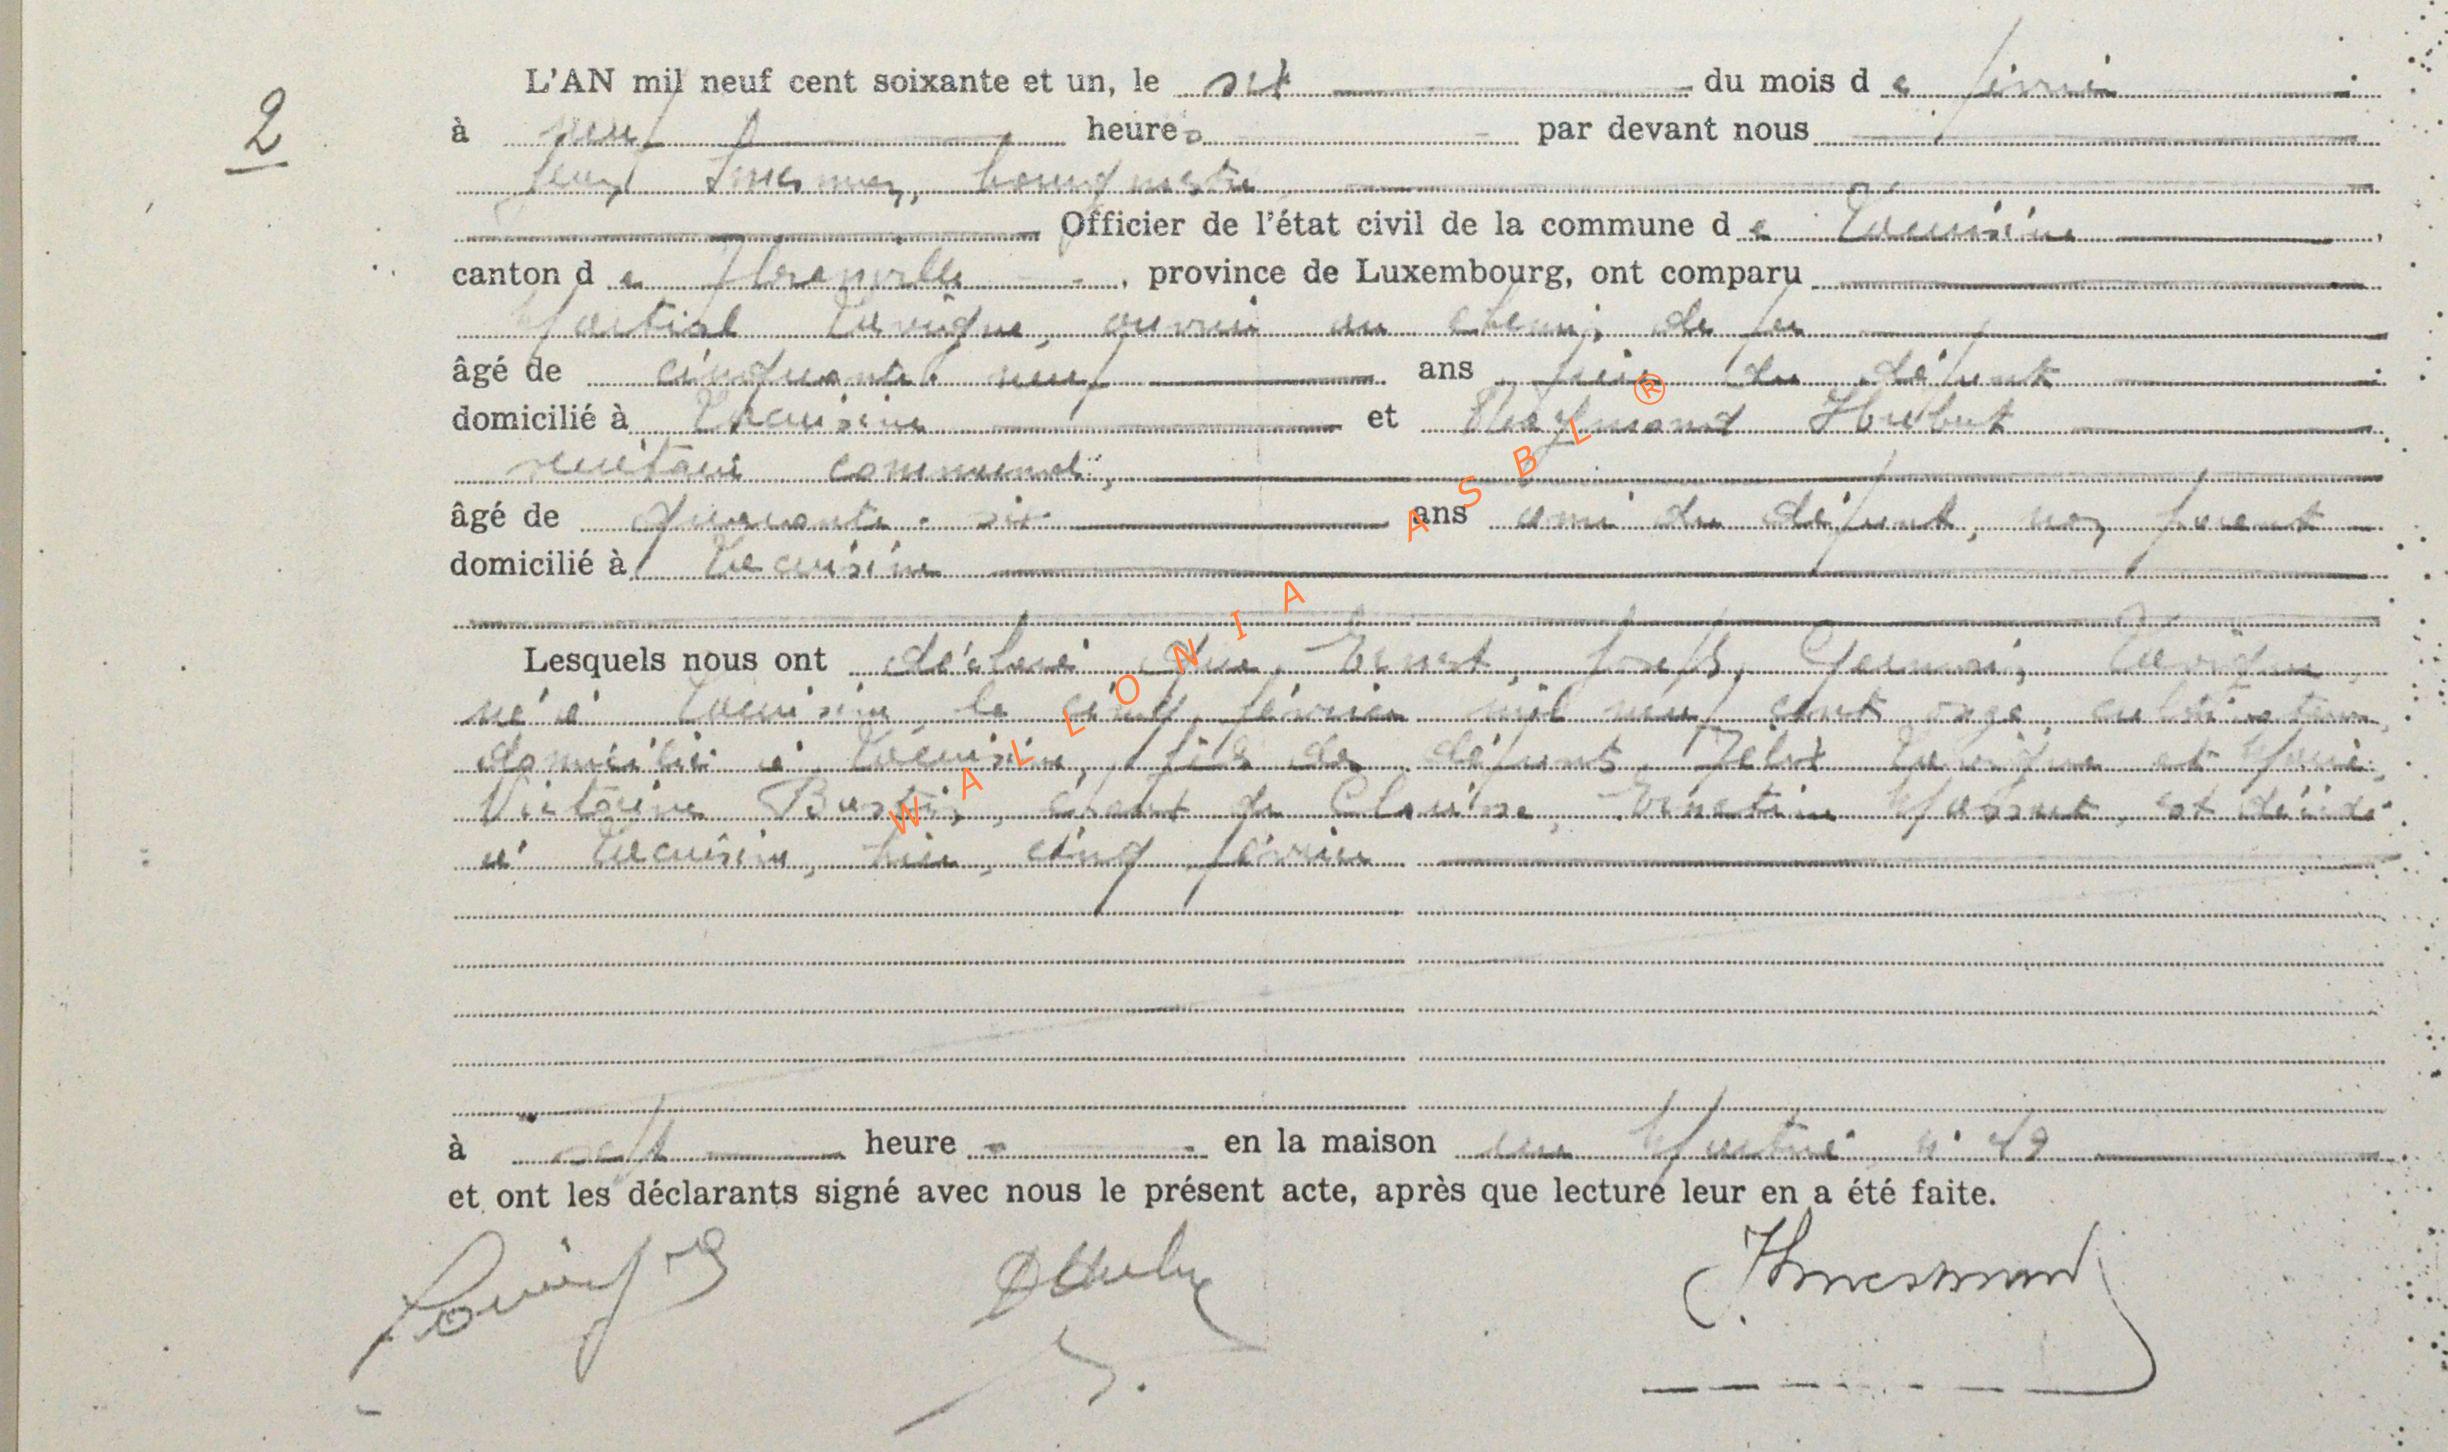 2
L'AN mil neuf cent soixante et un, le six du mois d e février
à neuf heures par devant nous
bourgmestre
Officier de l'état civil de la commune d e Lacuisine
canton d e Florenville, province de Luxembourg, ont comparu
Martial Lavigne, ouvrier au chemin de fer
âgé de cinquante-neuf ans frère du défunt
domicilié à Lacuisine et Raymond Hubert
secrétaire communal,
âgé de quarante-six ans ami du défunt, non parent
domicilié à Lacuisine
Lesquels nous ont déclaré que Ernest, Joseph, Germain, Lavigne,
né à Lacuisine, le cinq février mil neuf cent onze, cultivateur,
domicilié à Lacuisine, fils de défunts Félix Lavigne et Marie
Victorine Bustin, époux de Ernestine Massut, est décédé
à Lacuisine, hier, cinq février
à sept heure en la maison n° 49
et ont les déclarants signé avec nous le présent acte, après que lecture leur en a été faite.
WALLONIA ASBL ®